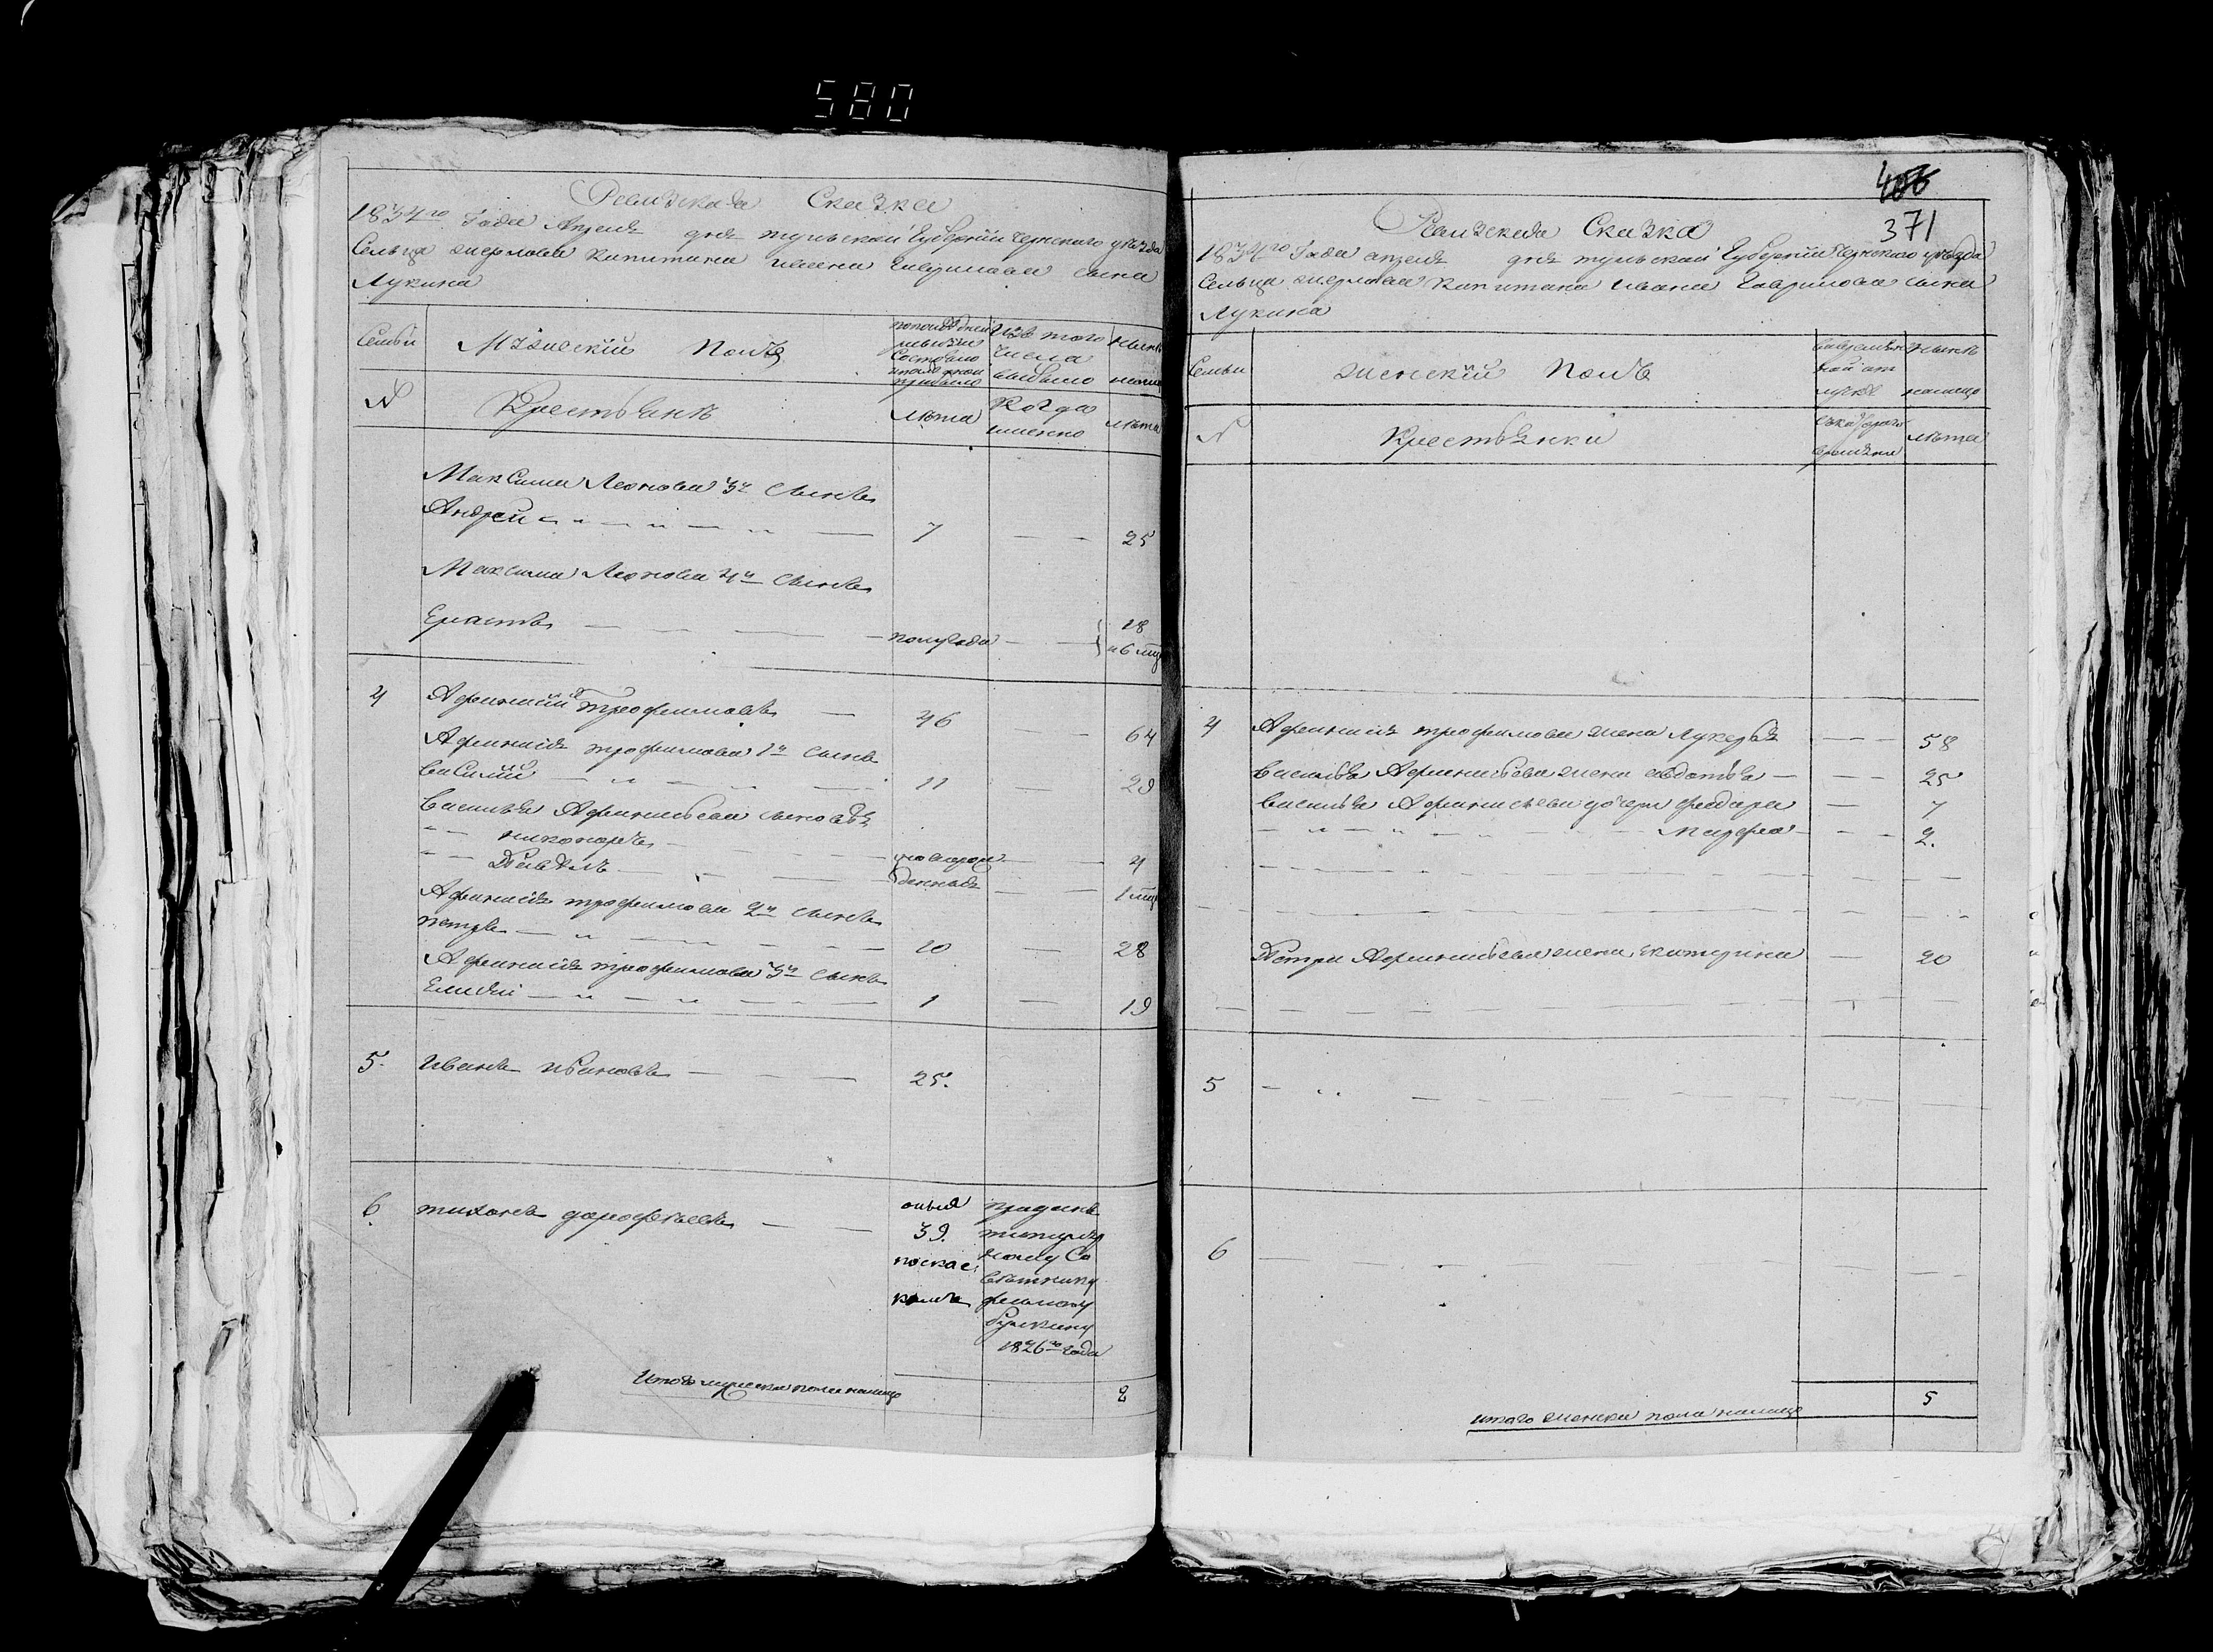 580
Ревизская Сказка
1834го Года Апреля дня тульской Губернии Чернского уезда
Сельца капитана ивана Гаврилова сына
Лукина
Семьи
Мужеский Полъ
По последней
ревизии
состояло
и после оной
прибыло
Изъ того
числа
выбыло
Ныне
налицо
№
Крестьяне
Лета
Когда
именно
Лета
Максима Леонова 3й сынъ
Андрей 7 25
Максима Леонова 4й сынъ
Ерастъ полугода 18
и 6 мц
4 Афанасий трофимовъ 46 64
Афанасия трофимова 1й сынъ
василий 11 29
василья Афанасьева сыновья
никоноръ новорож 4
Павелъ денныя 1 мц
Афанасия трофимова 2й сынъ
петръ 10 28
Афанасия трофимова 3й сынъ
Елисей 1 19
5. иванъ ивановъ 25.
6. тихонъ дорофеевъ
39.
проданъ
титуляр
ному Со
ветнику
1826го года
Итого мужеска пола налицо 8
406
371
Ревизская Сказка
1834го Года апреля дня тульской Губернии Чернского уезда
Сельца капитана ивана Гаврилова сына
Лукина
Семьи
женский Полъ
во времян
ной от
лучке
ныне
налицо
№
Крестьянки
съ которого
времяни
лета
4 Афанасия трофимова жена Лукерья 58
василья Афанасьева жена авдотья 25
василья Афанасьева дочери федора 7
марфа 2.
Петра Афанасьева жена екатерина 20
5
6
итого женска пола налицо 5